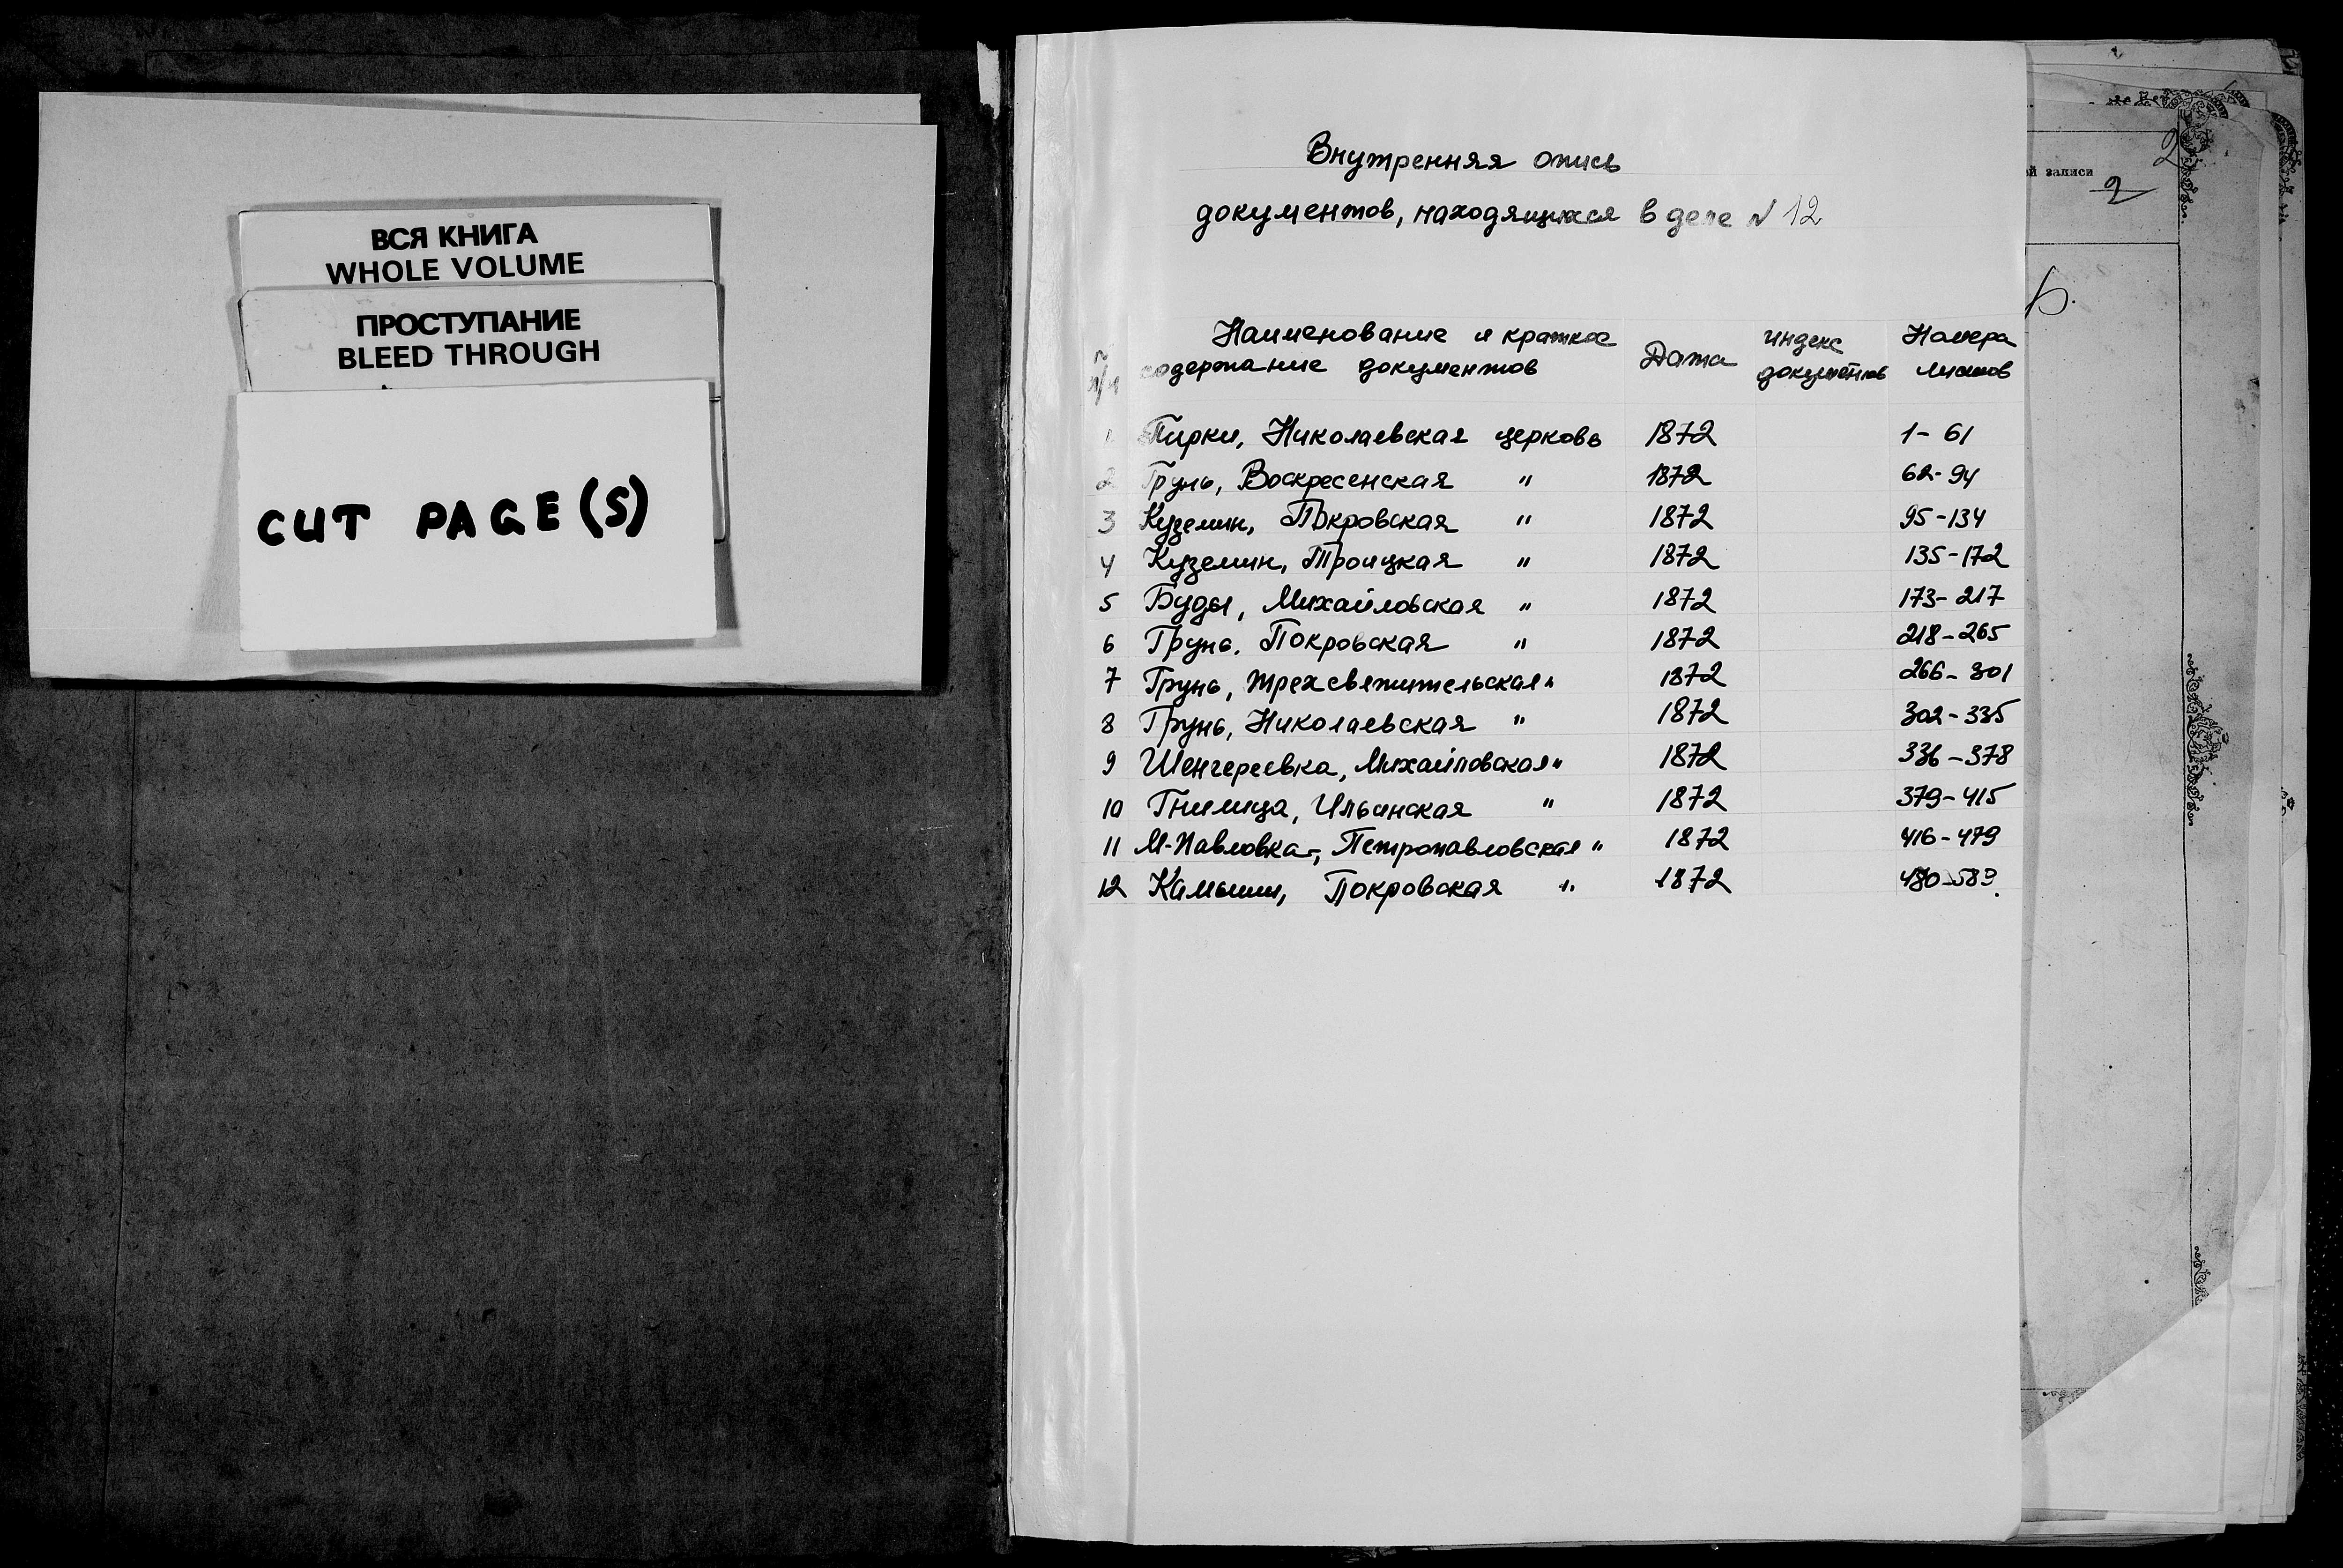 ВСЯ КНИГА
WHOLE VOLUME
ПРОСТУПАНИЕ
BLEED THROUGH
CUT PAGE(S)
Внутренняя опись
документов, находящихся в деле N 12
N п/п Наименование и краткое содержание документов Дата индекс документов Номера листов
1 Пирки, Николаевская церковь 1872 1-61
2 Грунь, Воскресенская " 1872 62-94
3 Куземин, Покровская " 1872 95-134
4 Куземин, Троицкая " 1872 135-172
5 Буды, Михайловская " 1872 173-217
6 Грунь. Покровская " 1872 218-265
7 Грунь, трехсвятительская " 1872 266-301
8 Грунь, Николаевская " 1872 302-335
9 Шенгереевка, Михайловская " 1872 336-378
10 Гнилица, Ильинская " 1872 379-415
11 М-Павловка, Петропавловская " 1872 416-479
12 Камыши, Покровская " 1872 480-583.
ей записи
2
2